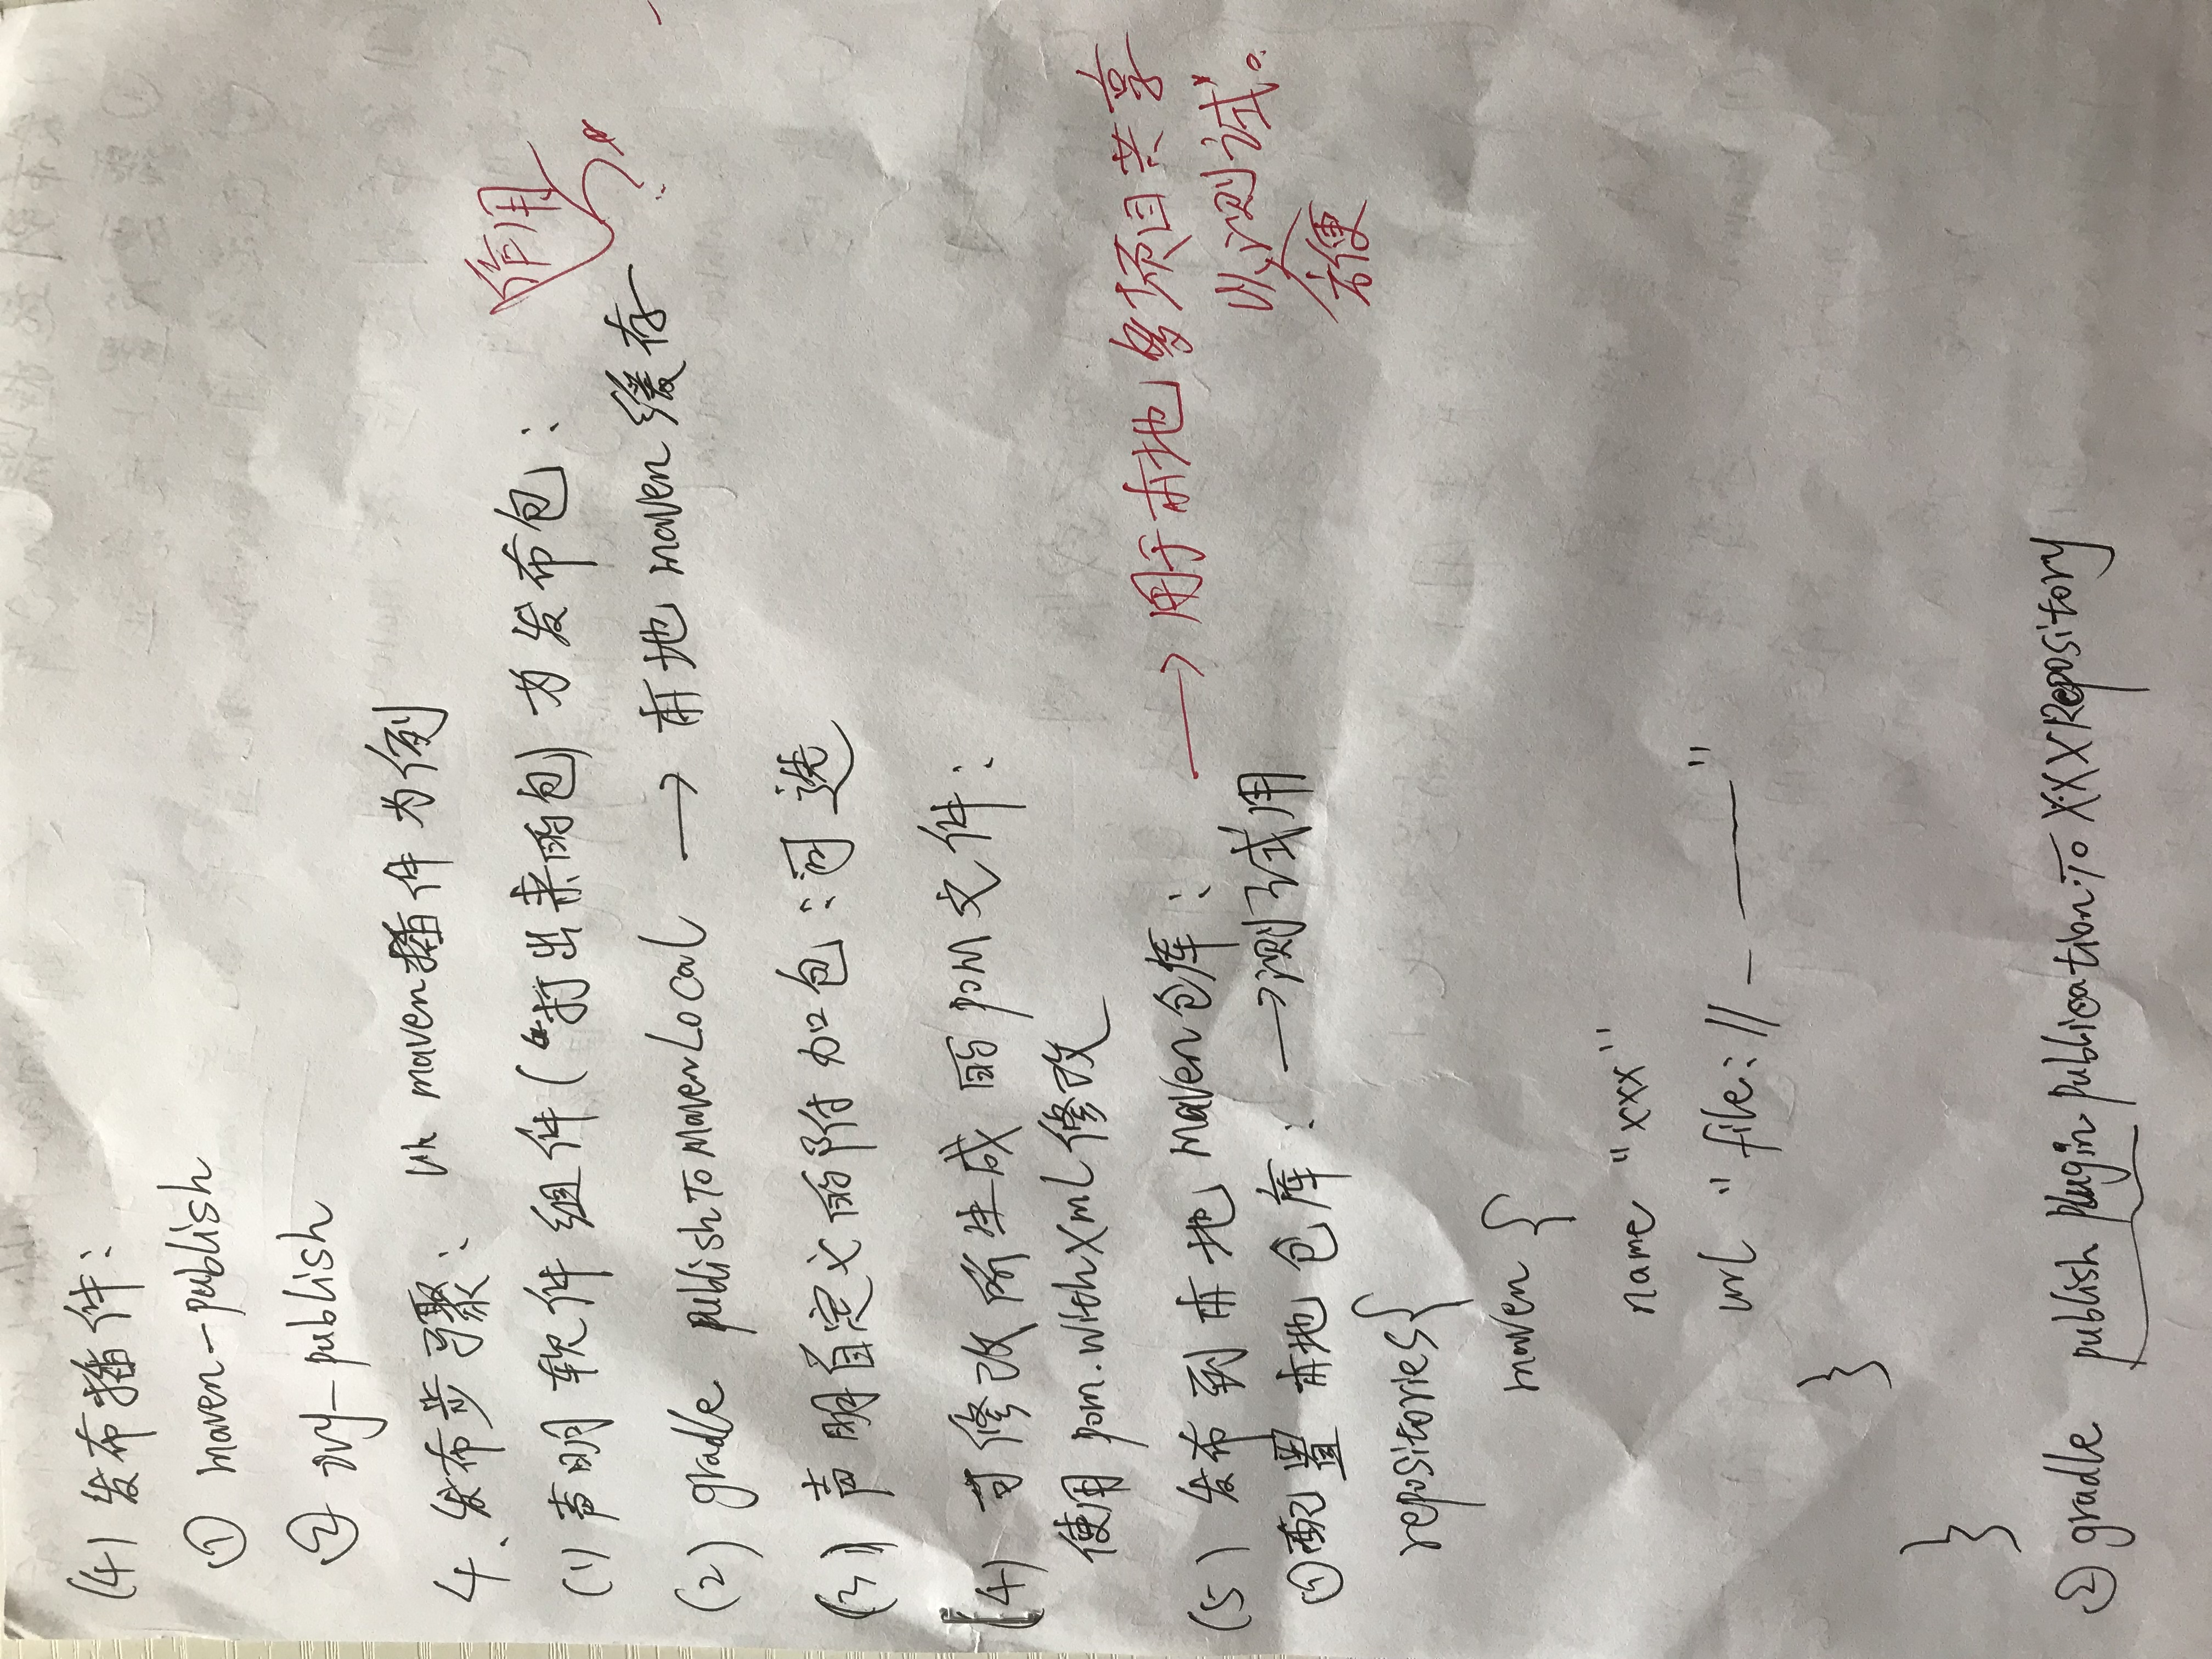 (4) 发布插件：
① maven-publish
② ivy-publish
4、发布步骤：以 maven插件为例
(1) 声明软件组件("打出来的包)为发布包：
作用
(2) gradle publishToMavenLocal → 本地 maven 缓存
(3) 声明自定义的附加包：可选
(4) 可修改所生成的pom文件：
使用 pom.withXml修改
(5) 发布到本地 maven仓库： → 用于本地多项目共享
以方便测试。
①配置本地仓库： →测试用
repositories{
maven {
name "xxx"
url "file://_ ——"
}
}
② gradle publish plugin publication To XXXRepository